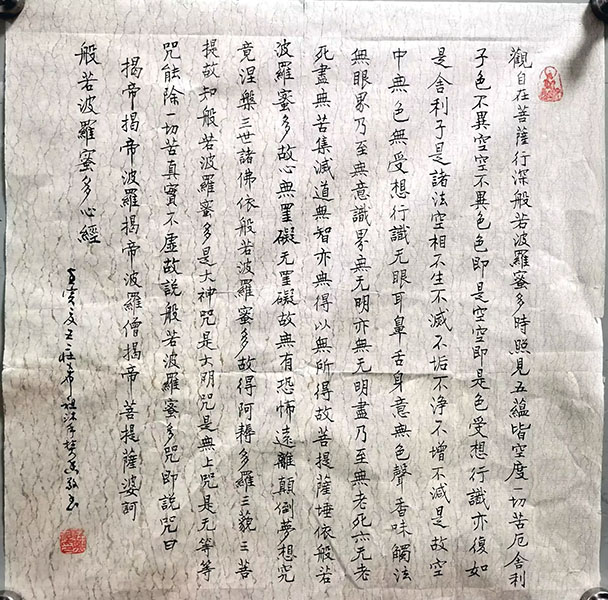 觀自在菩薩行深般若波羅蜜多時照見五蘊皆空度一切苦厄舍利
子色不異空空不異色色即是空空即是色受想行識亦復如
是舍利子是諸法空相不生不滅不垢不淨不增不減是故空
中無色無受想行識无眼耳鼻舌身意無色聲香味觸法
無眼界乃至無意識界無无明亦無无明盡乃至無老死亦无老
死盡無苦集滅道無智亦無得以無所得故菩提薩埵依般若
波羅蜜多故心無罣礙无罣礙故無有恐怖遠離顛倒夢想究
竟涅槃三世諸佛依般若波羅蜜多故得阿耨多羅三藐三菩
提故知般若波羅蜜多是大神咒是大明咒是無上咒是无等等
咒能除一切苦真實不虛故說般若波羅蜜多咒即說咒曰
揭帝揭帝波羅揭帝波羅僧揭帝菩提薩婆訶
般若波羅蜜多心經
壬寅夏